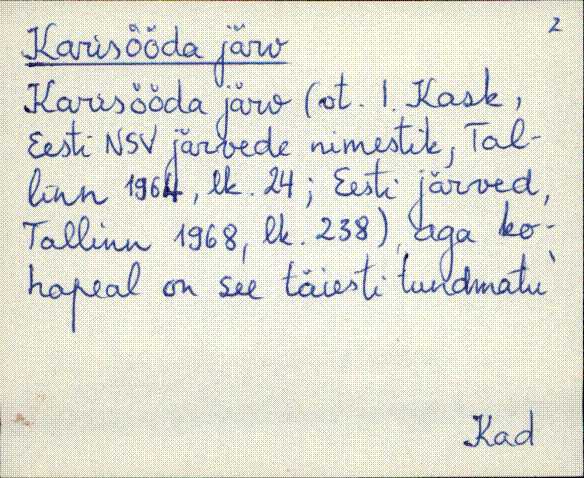 2
Karisööda järv
Karisööda järv (vt. I. Kask,
Eesti NSV järvede nimestik, Tal-
linn 1964, lk. 24; Eesti järved,
Tallinn 1968, lk. 238), aga ko-
hapeal on see täiesti tundmatu
Kad